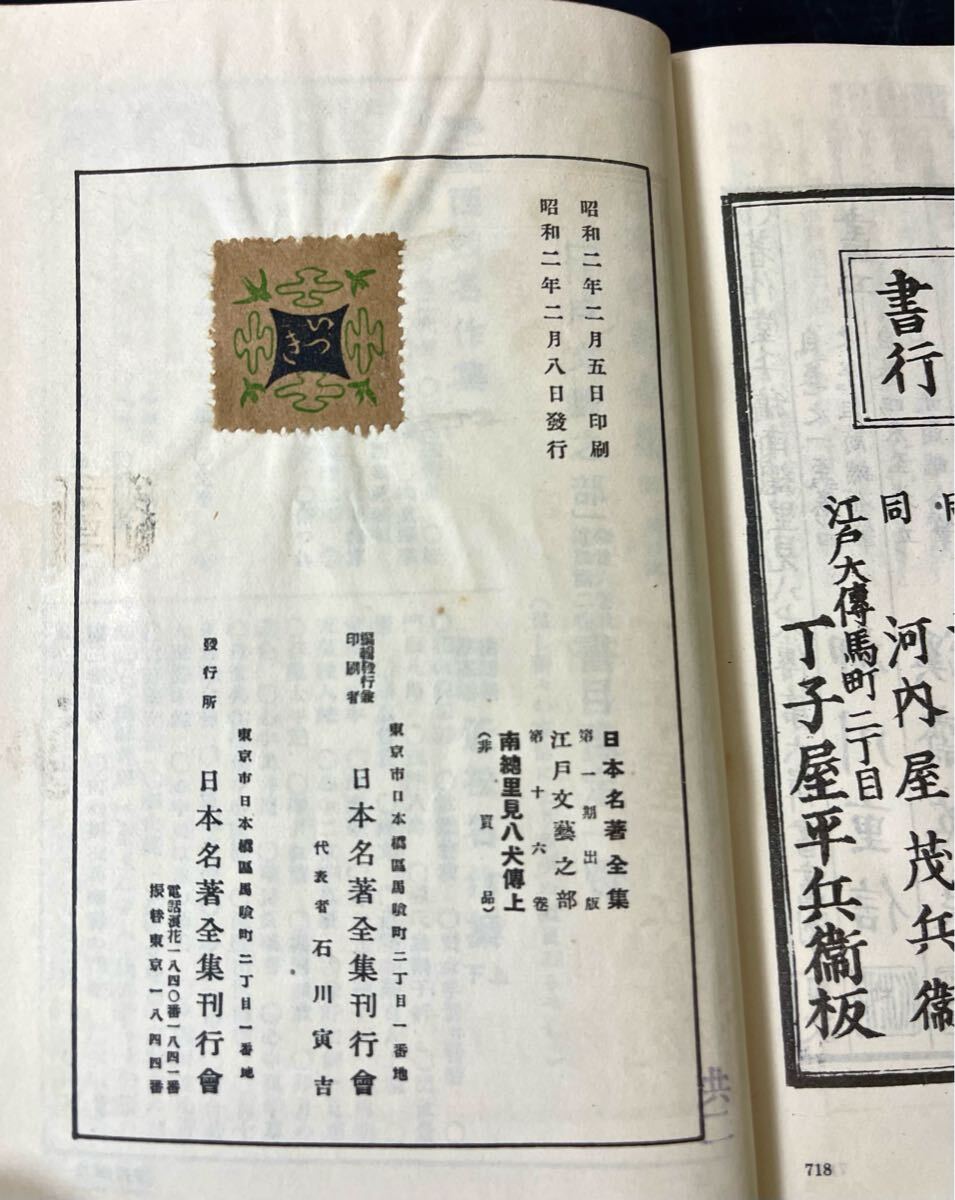 書行
同
江戸大傳馬町二丁目
河内屋茂兵衞
丁子屋平兵衞板
718
昭和二年二月五日印刷
昭和二年二月八日發行
いつき
日本名著全集
第一期出版
江戸文藝之部
第十六卷
南總里見八犬傳上
（非賣品）
東京市日本橋區馬喰町二丁目一番地
編輯發行兼
印刷者
日本名著全集刊行會
代表者 石川寅吉
東京市日本橋區馬喰町二丁目一番地
發行所
日本名著全集刊行會
電話浪花一八四〇番一八四一番
振替東京一八四四番